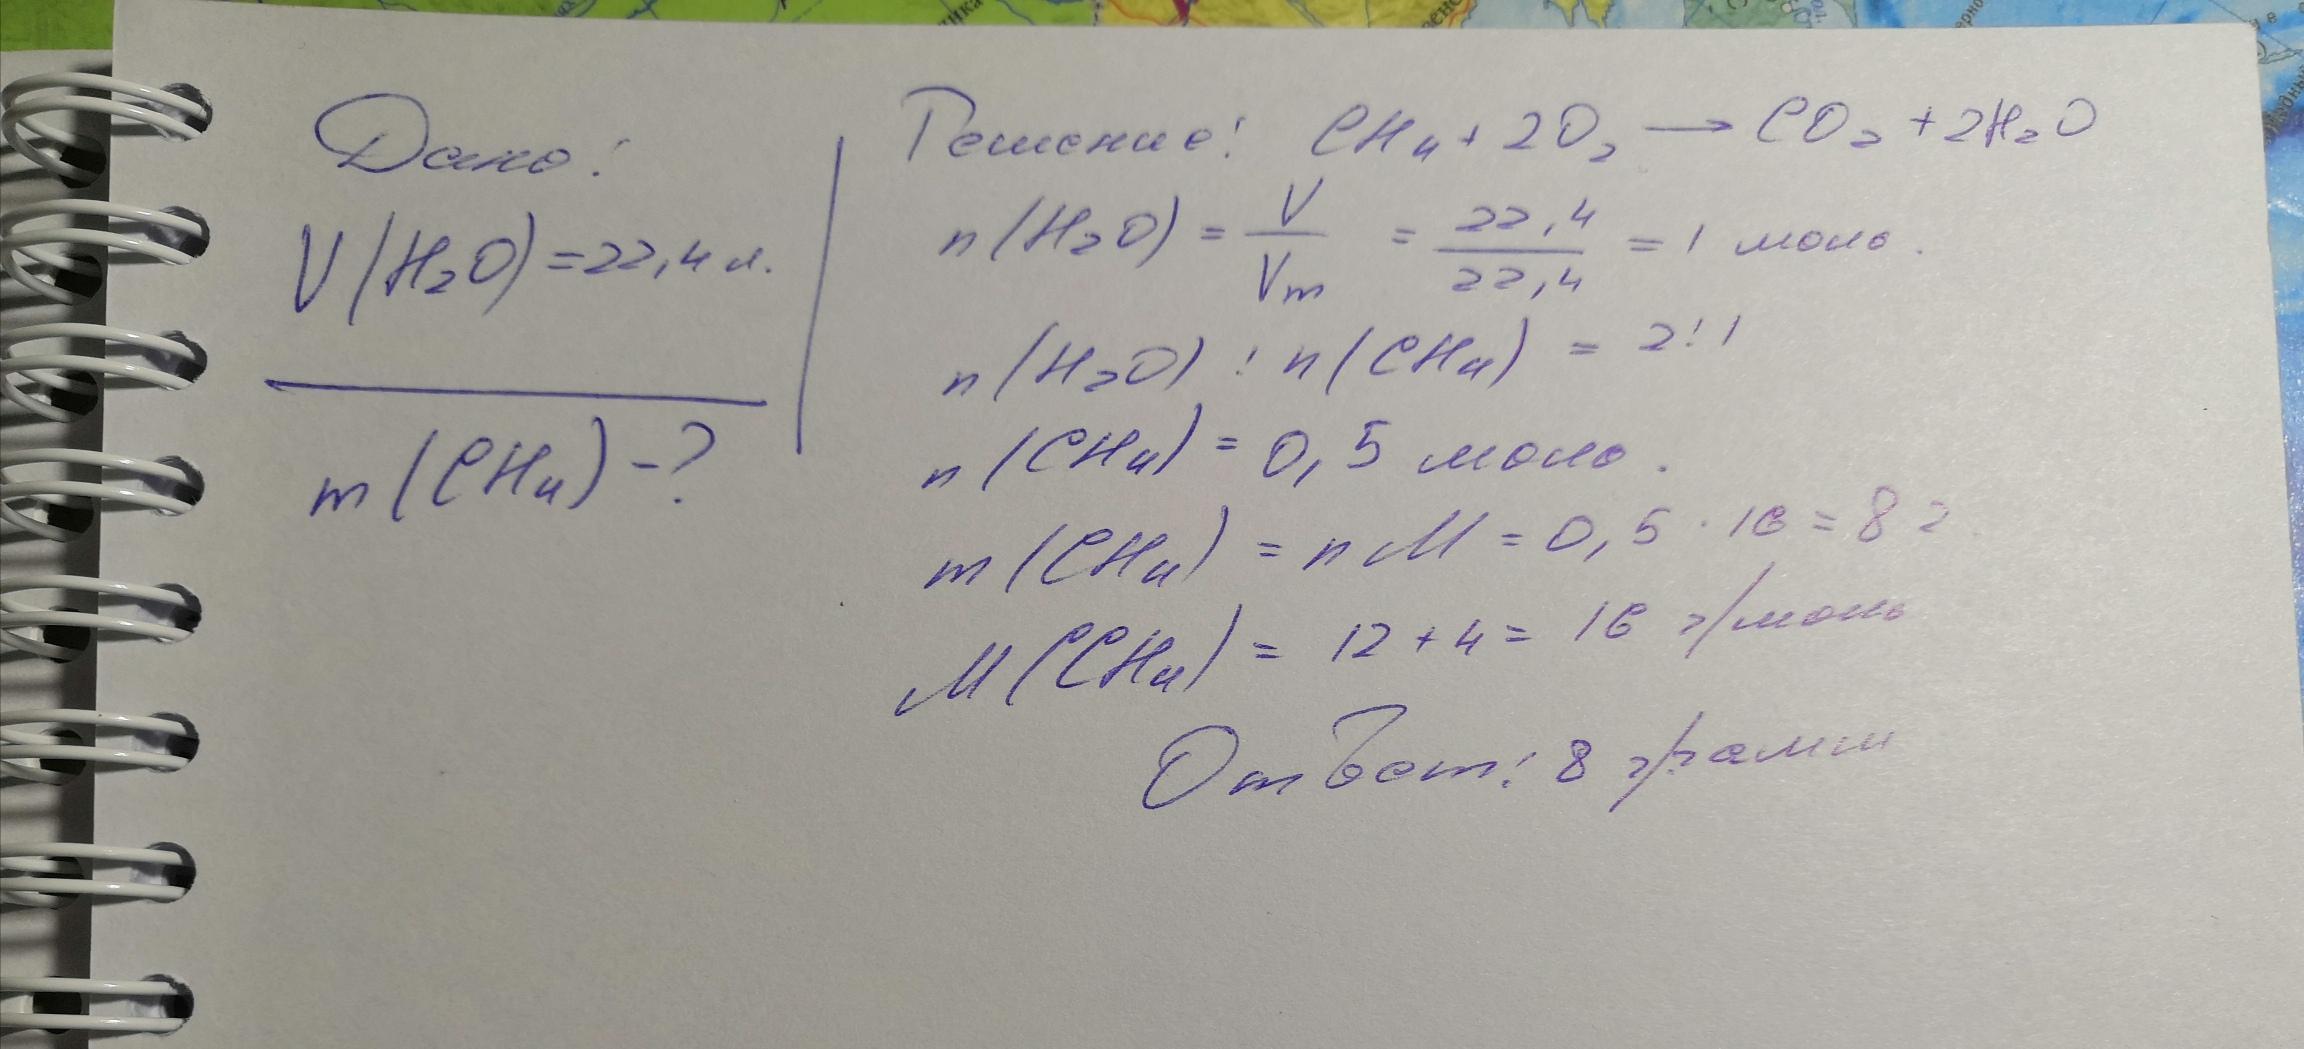 Дано:
V(H₂O) = 22,4 л.
m(CH₄) - ?
Решение: CH₄ + 2O₂ → CO₂ + 2H₂O
n(H₂O) = V/Vm = 22,4/22,4 = 1 моль.
n(H₂O) : n(CH₄) = 2:1
n(CH₄) = 0,5 моль.
m(CH₄) = nM = 0,5 · 16 = 8 г
M(CH₄) = 12 + 4 = 16 г/моль
Ответ: 8 грамм